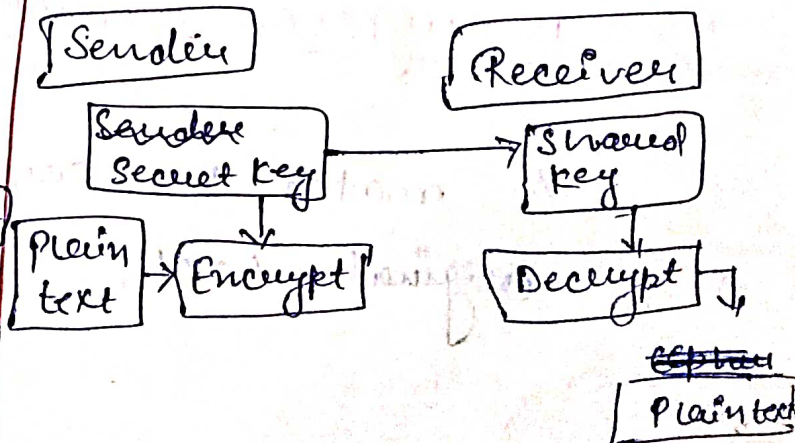 Sender
Receiver
Sender
Secret key
Shared
key
Plain
text
Encrypt
Decrypt
Plaintext